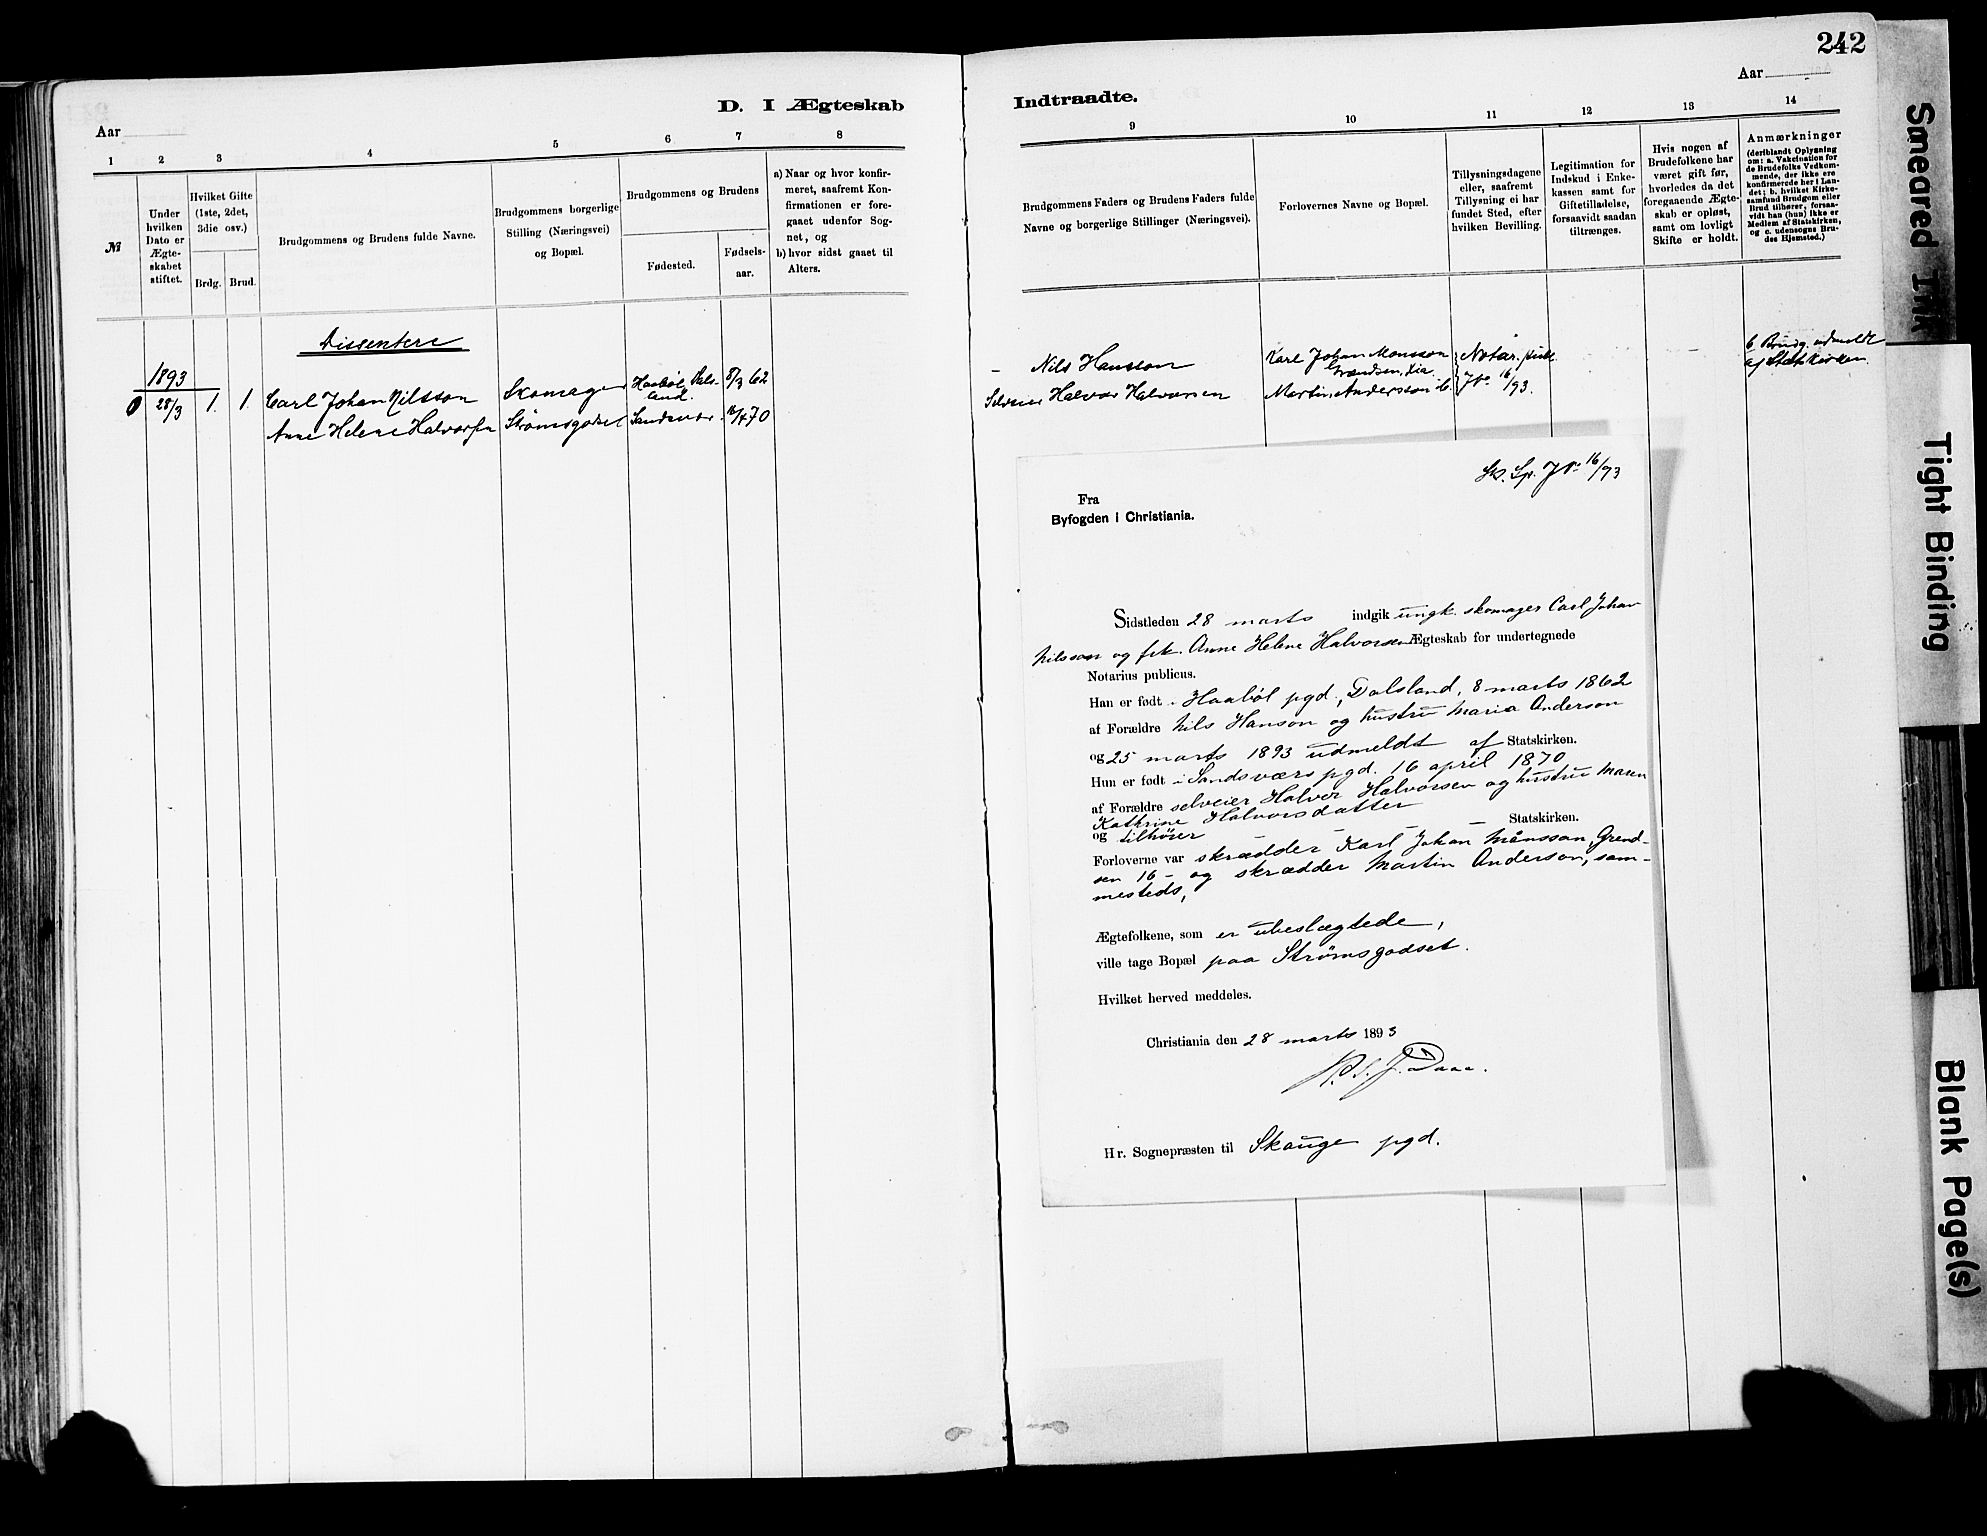 242
Aar
D. I Ægteskab
Indtraadte.
Aar
1 2 3 4 5 6 7 8
9 10 11 12 13 14
№
Under hvilken Dato er Ægteskabet stiftet.
Hvilket Gifte (1ste, 2det, 3die osv.)
Brdg. Brud.
Brudgommens og Brudens fulde Navne.
Brudgommens borgerlige Stilling (Næringsvei) og Bopæl.
Brudgommens og Brudens
Fødested.
Fødsels-
aar.
a) Naar og hvor konfir-
meret, saafremt Kon-
firmationen er fore-
gaaet udenfor Sog-
net, og
b) hvor sidst gaaet til
Alters.
Brudgommens Faders og Brudens Faders fulde
Navne og borgerlige Stillinger (Næringsvei).
Forlovernes Navne og Bopæl.
Tillysningsdagene
eller, saafremt
Tillysning ei har
fundet Sted, efter
hvilken Bevilling.
Legitimation for
Indskud i Enke-
kassen samt for
Giftetilladelse,
forsaavidt saadan
tiltrænges.
Hvis nogen af
Brudefolkene har
været gift før,
hvorledes da det
foregaaende Ægte-
skab er opløst,
samt om lovligt
Skifte er holdt.
Anmærkninger
(deriblandt Oplysning
om: a. Vakcination for
de Brudefolks Vedkom-
mende, der ikke ere
konfirmerede her i Lan-
det; b. hvilket Kirke-
samfund Brudgom eller
Brud tilhører, forsaa-
vidt han (hun) ikke er
Medlem af Statskirken,
og c. udensogns Bru-
des Hjemsted.)
Dissentere
1893
0 28/3 1. 1. Carl Johan Nilsson Skomager Haabøl, Dals-
land. 8/3 62
Anne Helene Halvorsen Strømsgodset Sandsvær 16/4 70
Nils Hansson Karl Johan Monsson Notar. publ.
Grændsen, Xia
Selveier Halvor Halvorsen Martin Andersson ib. No 16/93.
b Brudg. udmeldt
af Statskirken
Sk. Sp. No 16/93
Fra
Byfogden i Christiania.
Sidstleden 28 marts indgik ungk. skomager Carl Johan
Nilsson og frk. Anne Helene Halvorsen Ægteskab for undertegnede
Notarius publicus.
Han er født i Haabøl pgd, Dalsland, 8 marts 1862
af Forældre Nils Hanson og hustru Maria Anderson
og 25 marts 1893 udmeldt af Statskirken.
Hun er født i Sandsværs pgd. 16 april 1870
af Forældre selveier Halvor Halvorsen og hustru Maren
Kathrine Halvorsdatter
og tilhører — — — Statskirken.
Forloverne var skrædder Karl Johan Månsson, Grend-
sen 16 - og skrædder Martin Anderson, sam-
mesteds,
Ægtefolkene, som er ubeslægtede,
ville tage Bopæl paa Strømsgodset.
Hvilket herved meddeles.
Christiania den 28 marts 1893
Daae.
Hr. Sognepræsten til Skauger pgd.
Smeared Ink
Tight Binding
Blank Page(s)